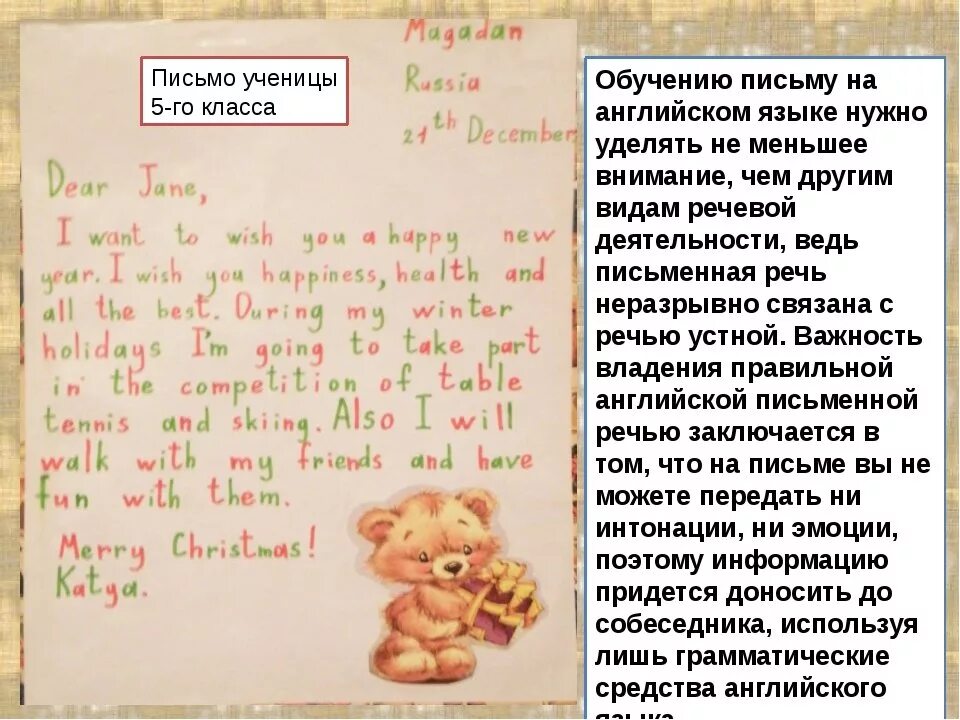 Magadan
Russia
21th December
Письмо ученицы
5-го класса
Dear Jane,
I want to wish you a happy new
year. I wish you happiness, health and
all the best. During my winter
holidays I'm going to take part
in the competition of table
tennis and skiing. Also I will
walk with my friends and have
fun with them.
Merry Christmas!
Katya.
Обучению письму на
английском языке нужно
уделять не меньшее
внимание, чем другим
видам речевой
деятельности, ведь
письменная речь
неразрывно связана с
речью устной. Важность
владения правильной
английской письменной
речью заключается в
том, что на письме вы не
можете передать ни
интонации, ни эмоции,
поэтому информацию
придется доносить до
собеседника, используя
лишь грамматические
средства английского
языка